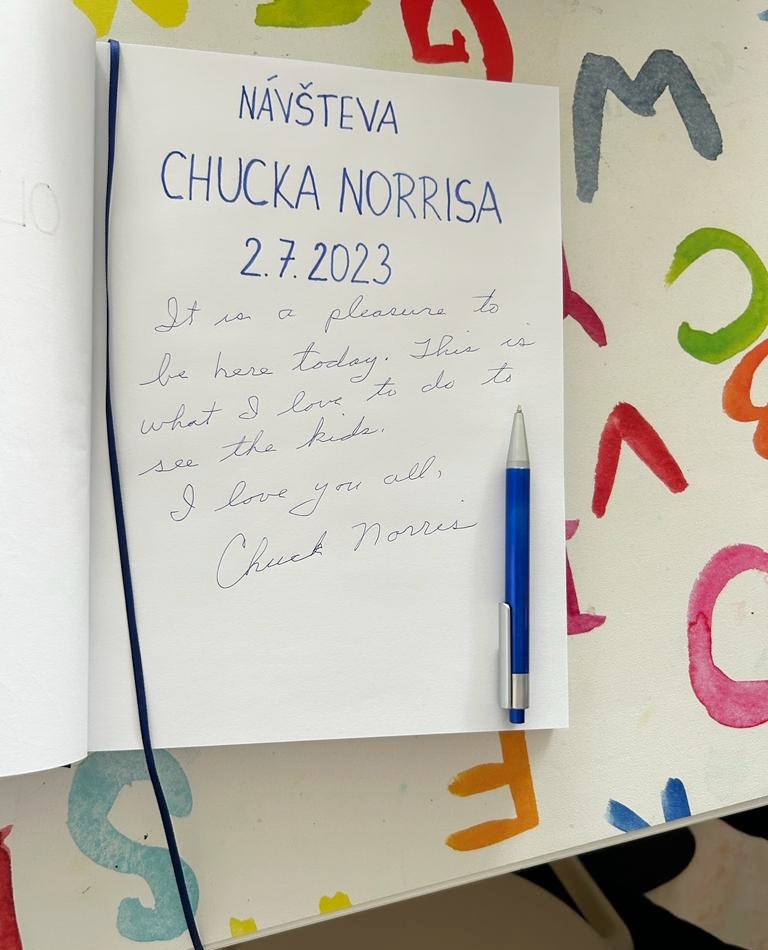 NÁVŠTEVA
CHUCKA NORRISA
2.7.2023
It is a pleasure to
be here today. This is
what I love to do to
see the kids.
I love you all,
Chuck Norris